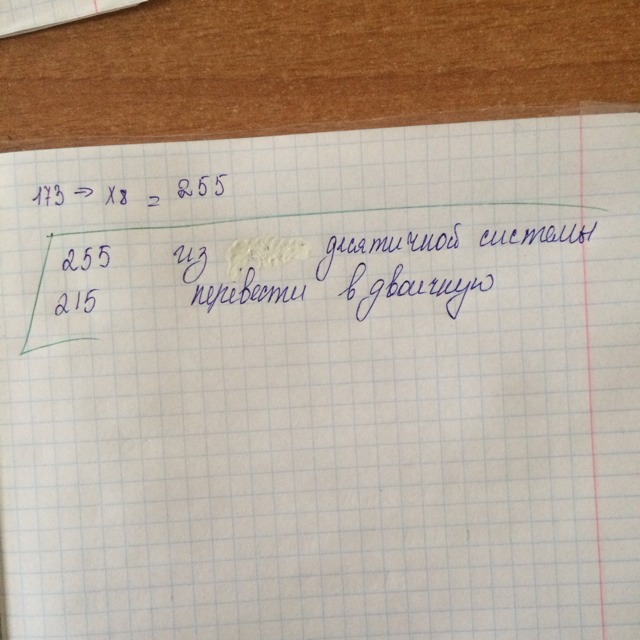 173 → X8 = 255
255 из десятичной системы
215 перевести в двоичную